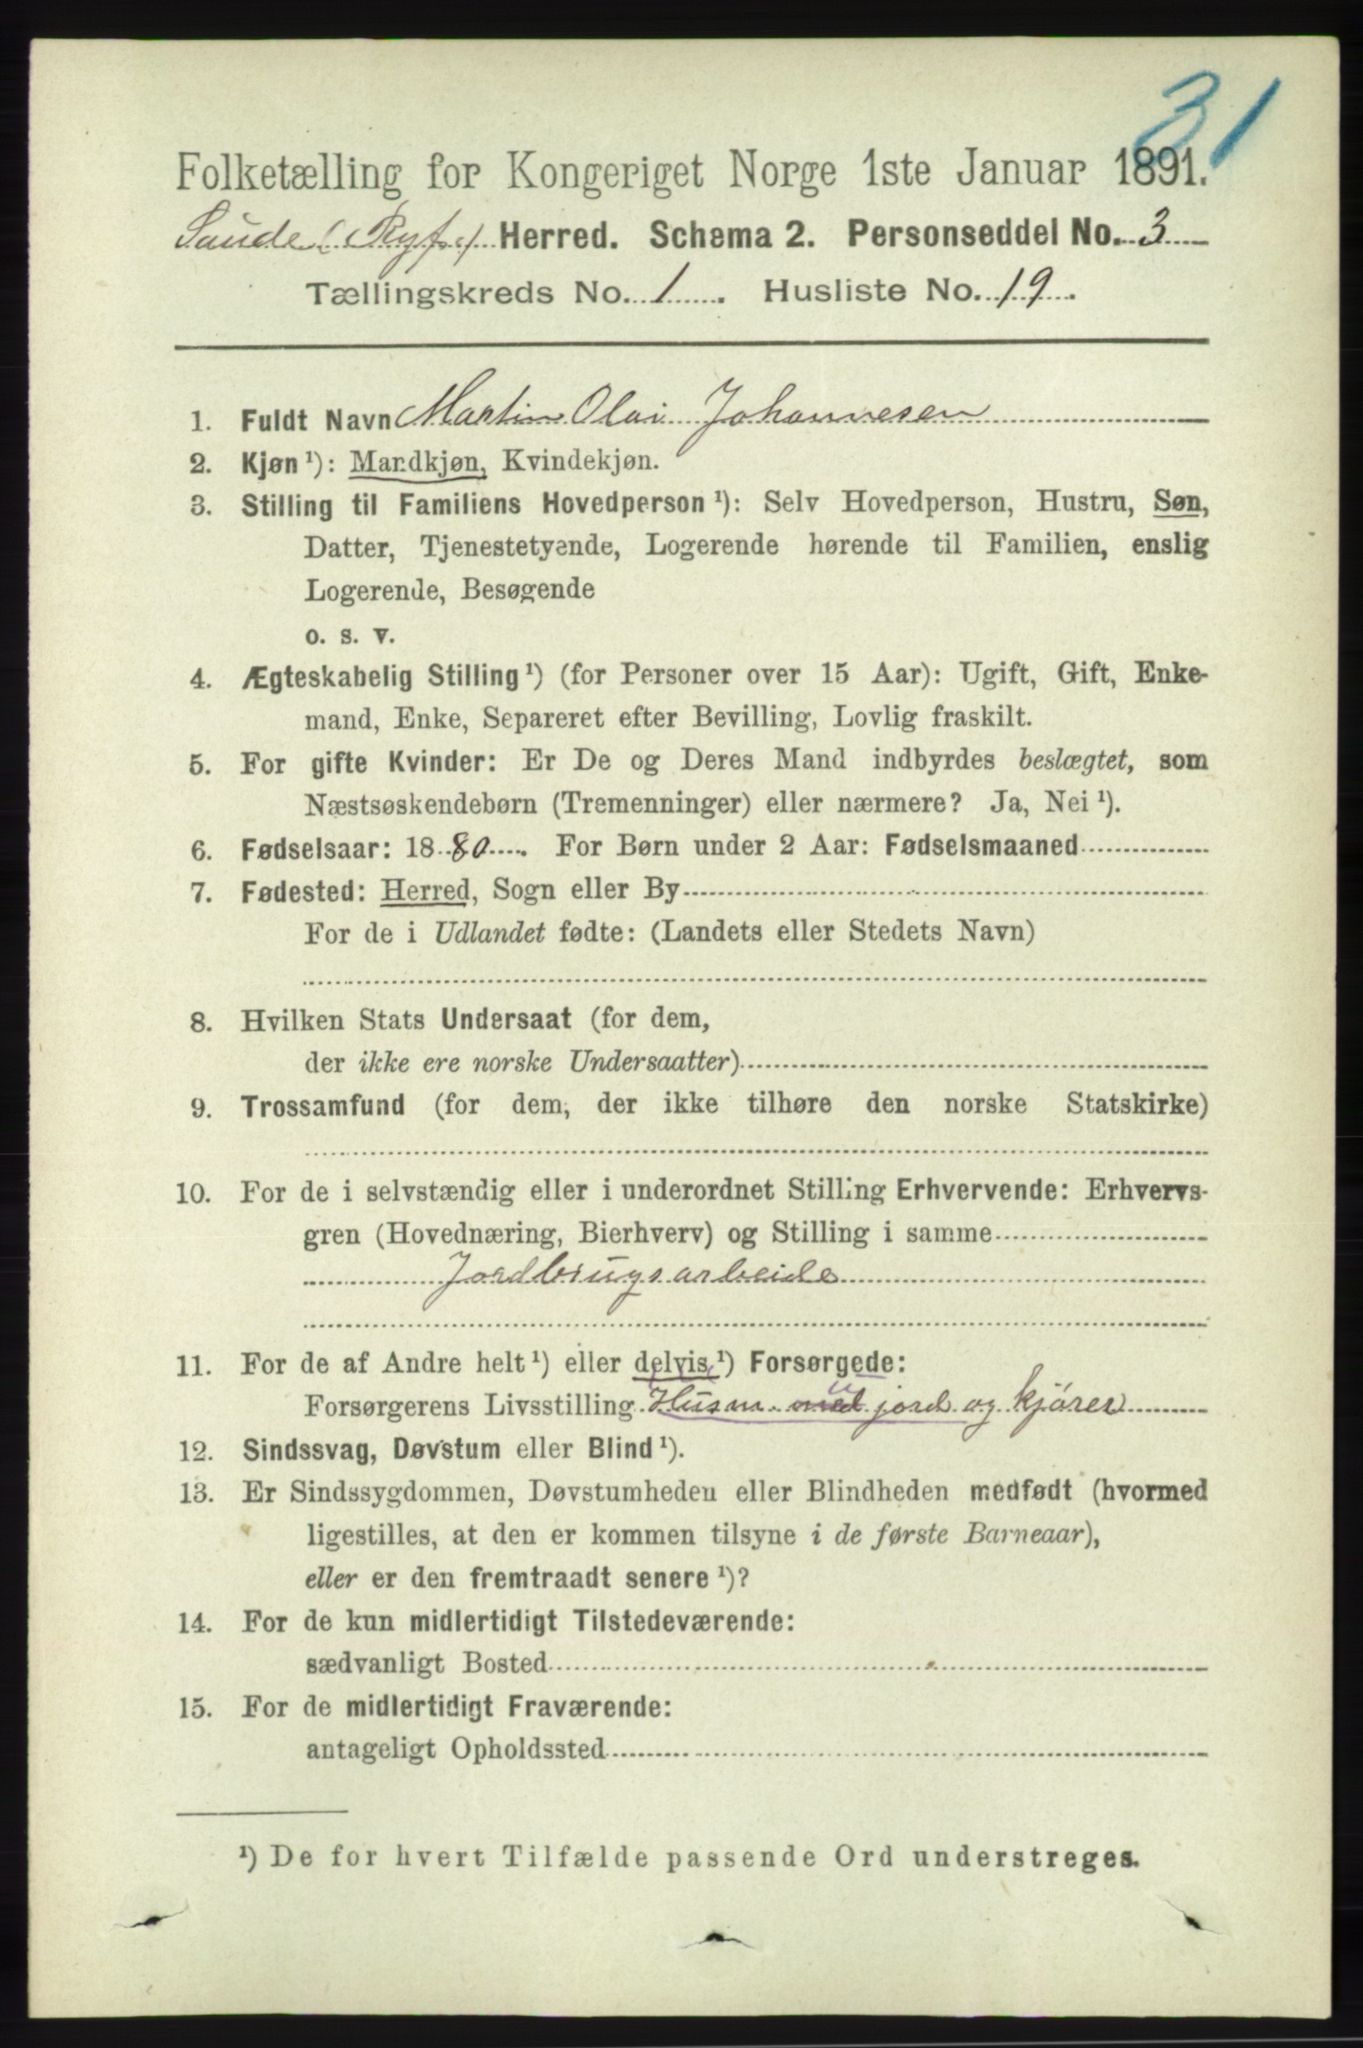 31
Folketælling for Kongeriget Norge 1ste Januar 1891.
Saude (Ryf.) Herred. Schema 2. Personseddel No. 3
Tællingskreds No. 1. Husliste No. 19.
1. Fuldt Navn Martin Olai Johannesen
2. Kjøn ¹): Mandkjøn, Kvindekjøn.
3. Stilling til Familiens Hovedperson ¹): Selv Hovedperson, Hustru, Søn,
Datter, Tjenestetyende, Logerende hørende til Familien, enslig
Logerende, Besøgende
o. s. v.
4. Ægteskabelig Stilling ¹) (for Personer over 15 Aar): Ugift, Gift, Enke-
mand, Enke, Separeret efter Bevilling, Lovlig fraskilt.
5. For gifte Kvinder: Er De og Deres Mand indbyrdes beslægtet, som
Næstsøskendebørn (Tremenninger) eller nærmere? Ja, Nei ¹).
6. Fødselsaar: 1880. For Børn under 2 Aar: Fødselsmaaned
7. Fødested: Herred, Sogn eller By
For de i Udlandet fødte: (Landets eller Stedets Navn)
8. Hvilken Stats Undersaat (for dem,
der ikke ere norske Undersaatter)
9. Trossamfund (for dem, der ikke tilhøre den norske Statskirke)
10. For de i selvstændig eller i underordnet Stilling Erhvervende: Erhvervs-
gren (Hovednæring, Bierhverv) og Stilling i samme
Jordbrugsarbeide
11. For de af Andre helt ¹) eller delvis ¹) Forsørgede:
Forsørgerens Livsstilling Husm. med jord og kjører
12. Sindssvag, Døvstum eller Blind ¹).
13. Er Sindssygdommen, Døvstumheden eller Blindheden medfødt (hvormed
ligestilles, at den er kommen tilsyne i de første Barneaar),
eller er den fremtraadt senere ¹)?
14. For de kun midlertidigt Tilstedeværende:
sædvanligt Bosted
15. For de midlertidigt Fraværende:
antageligt Opholdssted
¹) De for hvert Tilfælde passende Ord understreges.